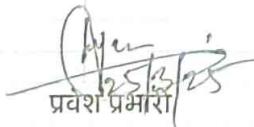 25/3/25
प्रवेश प्रभारी